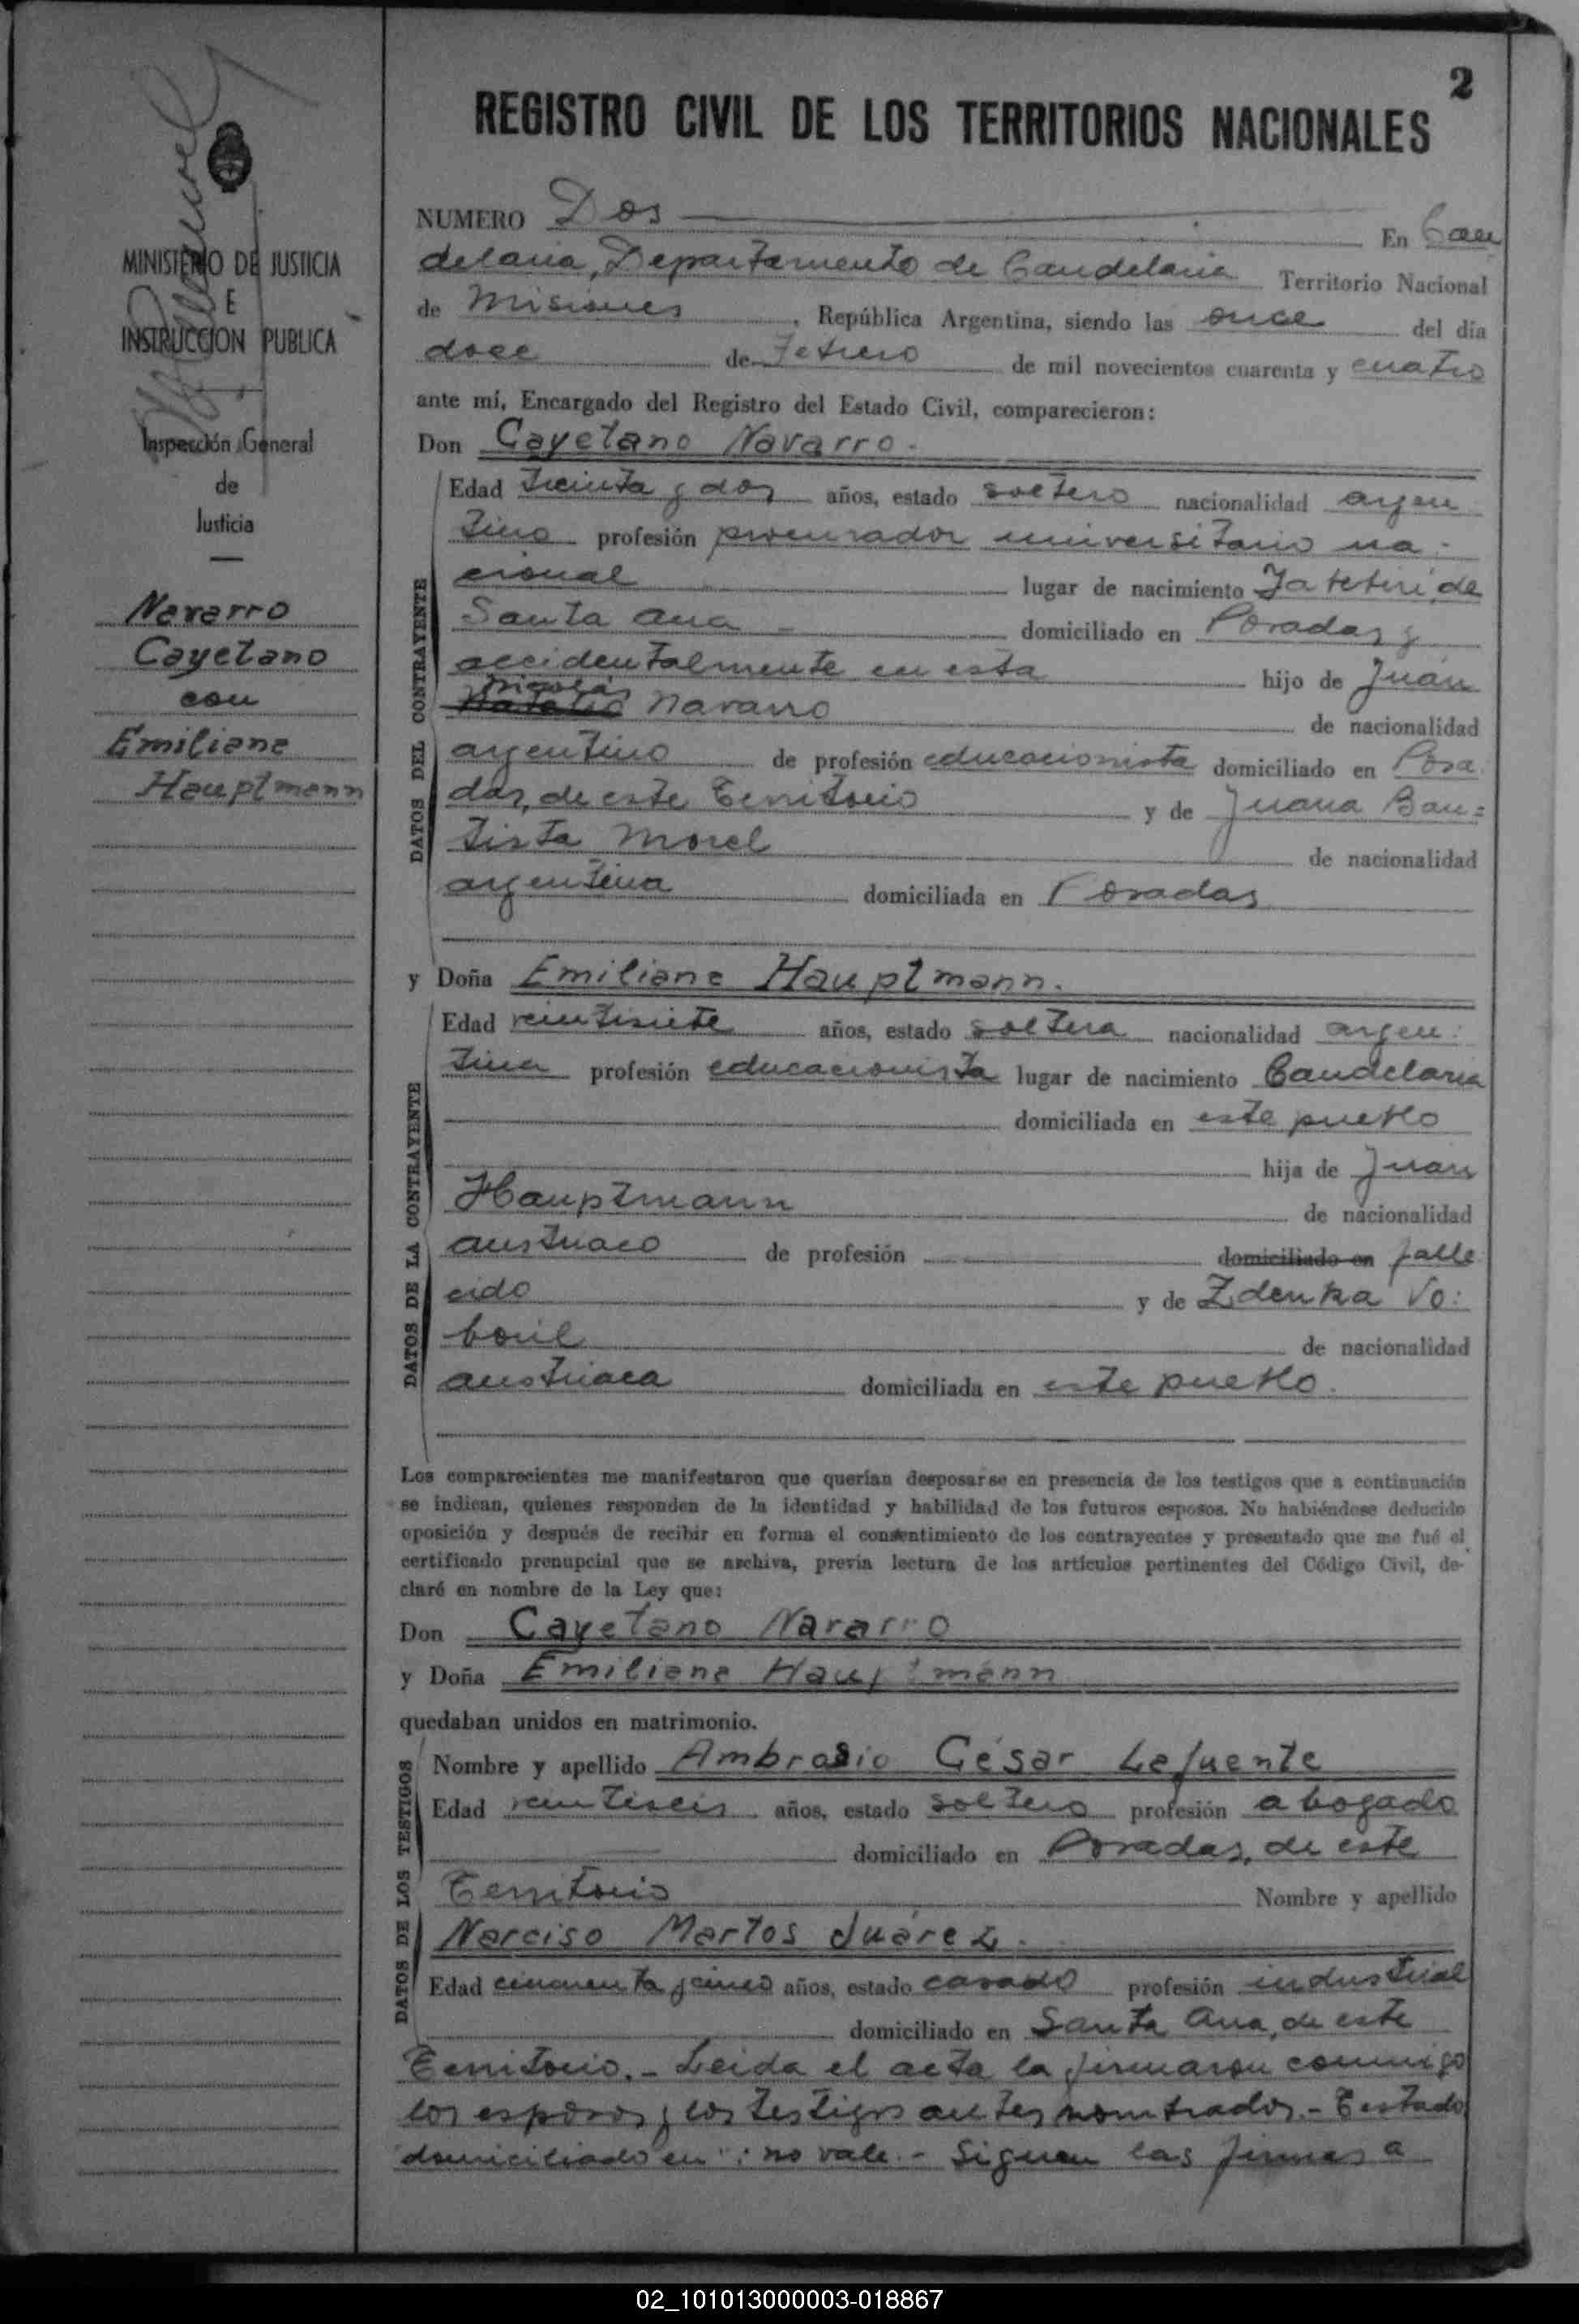 2
REGISTRO CIVIL DE LOS TERRITORIOS NACIONALES
MINISTERIO DE JUSTICIA
E
INSTRUCCION PUBLICA
Inspección General
de
Justicia
Navarro
Cayetano
con
Emiliana
Hauptmann
NUMERO Dos En Can
delaria, Departamento de Candelaria Territorio Nacional
de Misiones, República Argentina, siendo las once del día
doce de Febrero de mil novecientos cuarenta y cuatro
ante mí, Encargado del Registro del Estado Civil, comparecieron:
Don Cayetano Navarro.
DATOS DEL CONTRAYENTE
Edad treinta y dos años, estado soltero nacionalidad argen
tino profesión procurador universitario na-
cional lugar de nacimiento Yatebirí, de
Santa Ana - domiciliado en Posadas y
accidentalmente en esta hijo de Juan
Nicolás
Navarro de nacionalidad
argentino de profesión educacionista domiciliado en Posa
das, de este Territorio y de Juana Bau=
tista Morel de nacionalidad
argentina domiciliada en Posadas
y Doña Emiliana Hauptmann.
DATOS DE LA CONTRAYENTE
Edad veintisiete años, estado soltera nacionalidad argen:
tina profesión educacionista lugar de nacimiento Candelaria
domiciliada en este pueblo
hija de Juan
Hauptmann de nacionalidad
austriaco de profesión domiciliado en falle
cido y de Zdenka Vo:
boril de nacionalidad
austriaca domiciliada en este pueblo.
Los comparecientes me manifestaron que querían desposarse en presencia de los testigos que a continuación
se indican, quienes responden de la identidad y habilidad de los futuros esposos. No habiéndose deducido
oposición y después de recibir en forma el consentimiento de los contrayentes y presentado que me fué el
certificado prenupcial que se archiva, previa lectura de los artículos pertinentes del Código Civil, de-
claré en nombre de la Ley que:
Don Cayetano Navarro
y Doña Emiliana Hauptmann
quedaban unidos en matrimonio.
DATOS DE LOS TESTIGOS
Nombre y apellido Ambrosio César Lafuente
Edad veintiseis años, estado soltero profesión abogado
domiciliado en Posadas, de este
Territorio Nombre y apellido
Narciso Martos Juárez.
Edad cincuenta y cinco años, estado casado profesión industrial
domiciliado en Santa Ana, de este
Territorio.- Leida el acta la firmaron conmigo
los esposos y los testigos antes nombrados.- Testado
"domiciliado en": no vale.- Siguen las firmas a
02_101013000003-018867